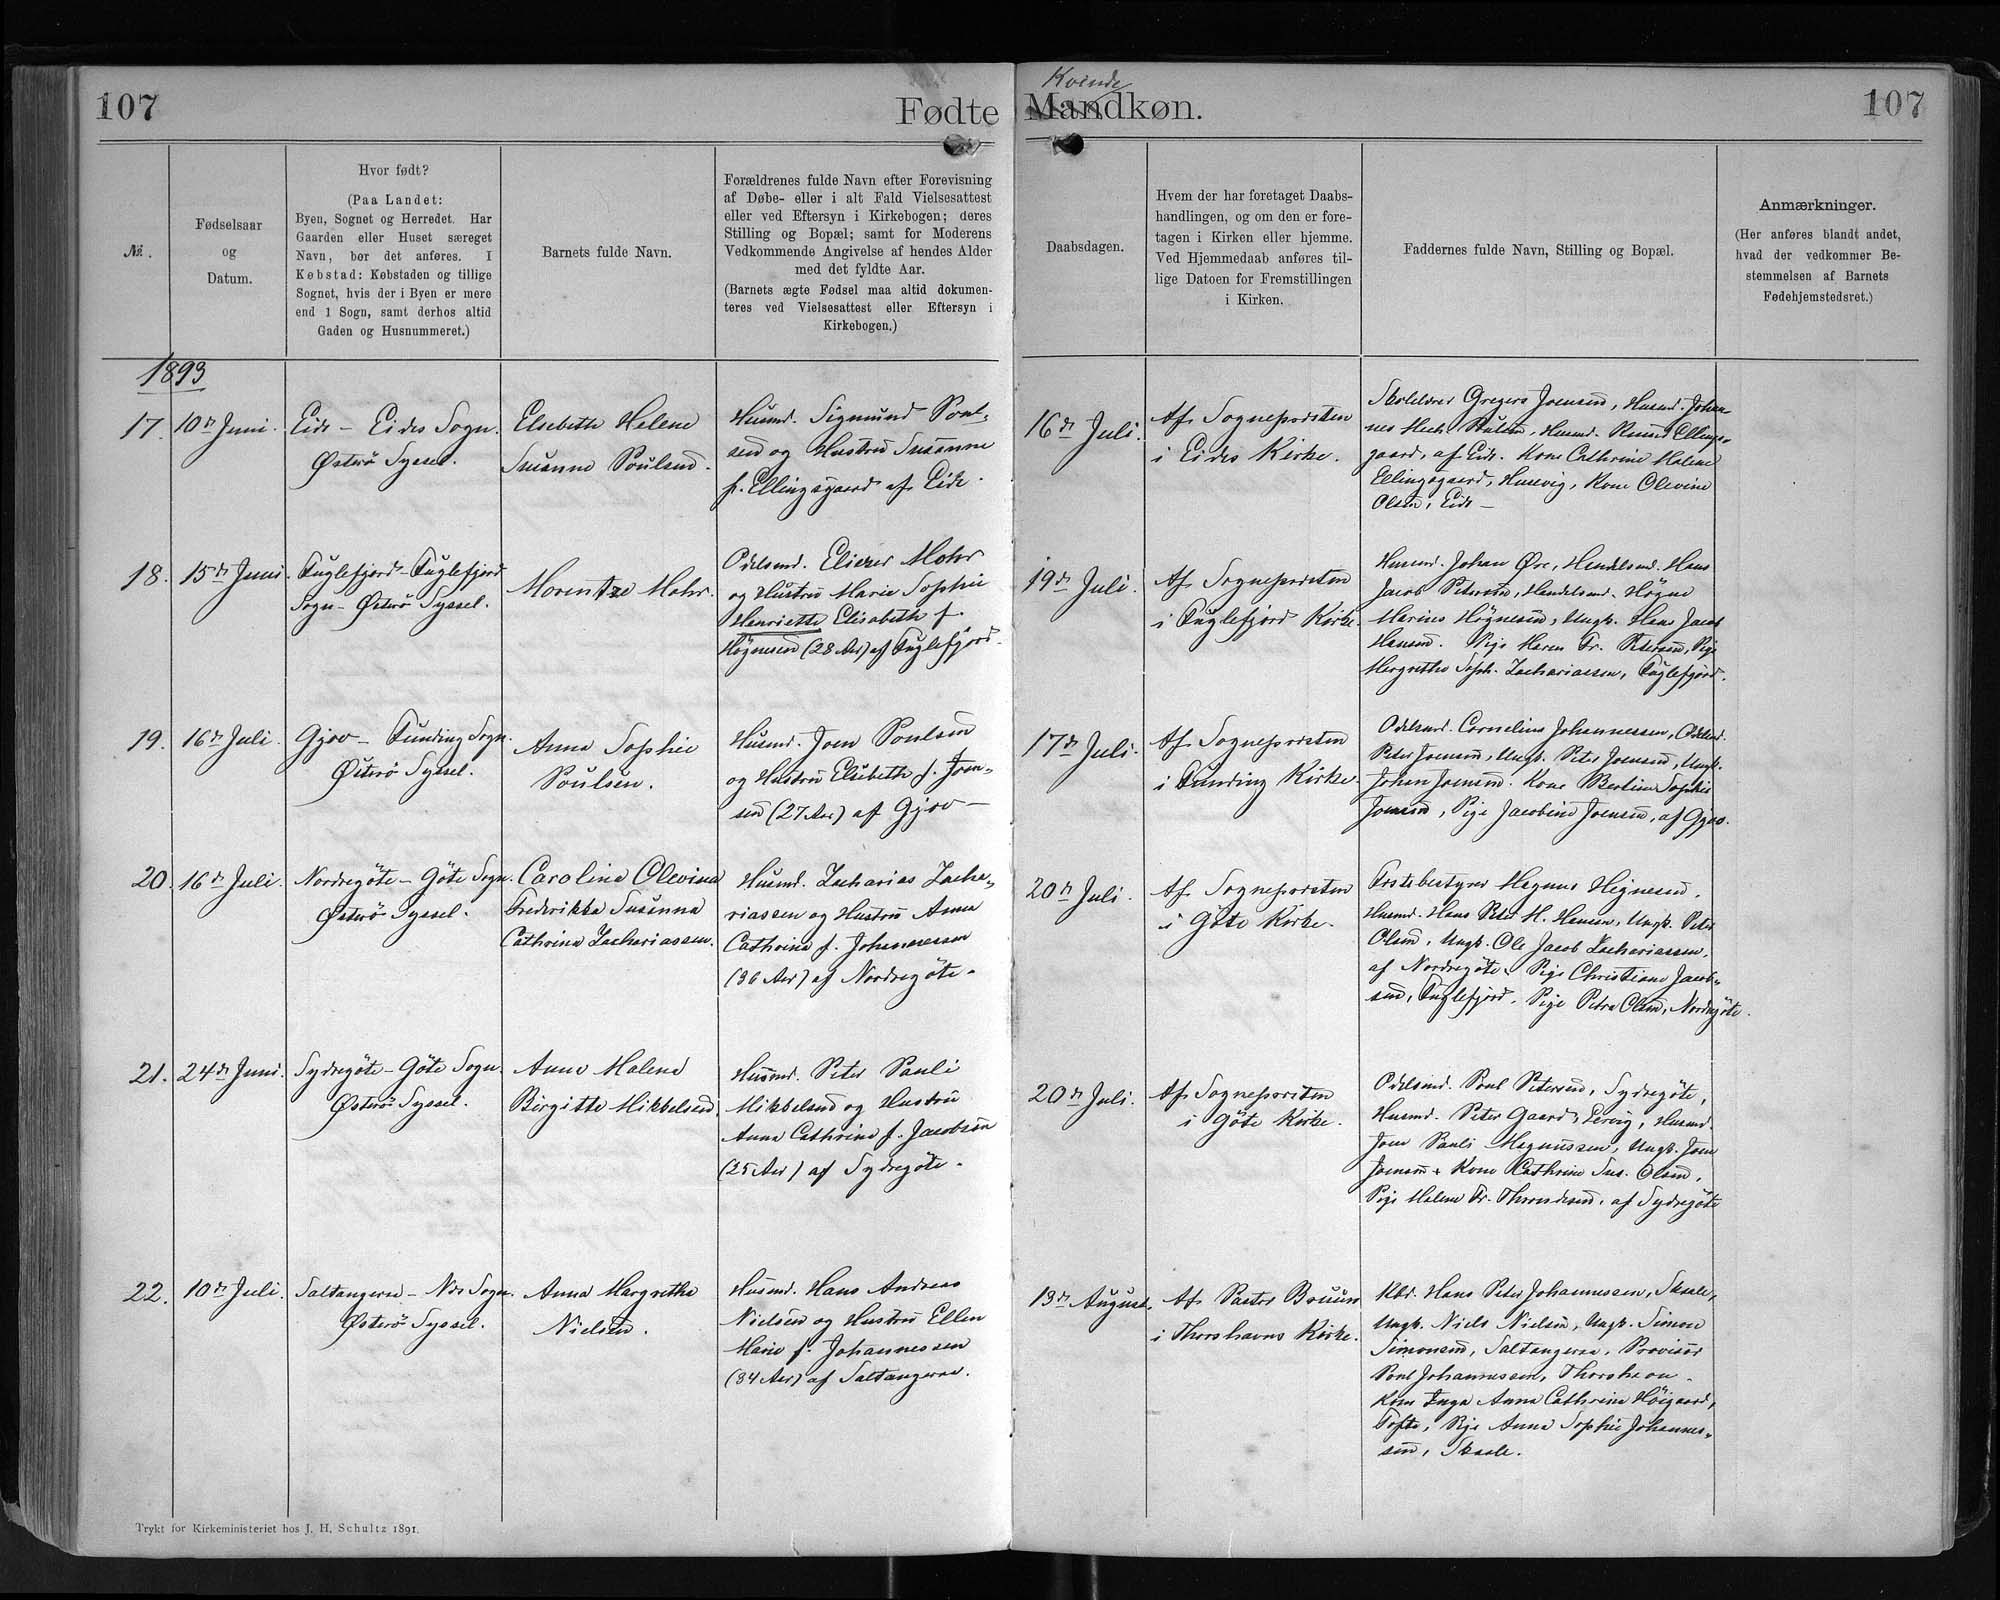 107
Fødte
Kvinde
Mandkøn.
107
№.
Fødselsaar
og
Datum.
Hvor født?
(Paa Landet:
Byen, Sognet og Herredet. Har
Gaarden eller Huset særeget
Navn, bør det anføres. I
Købstad: Købstaden og tillige
Sognet, hvis der i Byen er mere
end 1 Sogn, samt derhos altid
Gaden og Husnummeret.)
Barnets fulde Navn.
Forældrenes fulde Navn efter Forevisning
af Døbe- eller i alt Fald Vielsesattest
eller ved Eftersyn i Kirkebogen; deres
Stilling og Bopæl; samt for Moderens
Vedkommende Angivelse af hendes Alder
med det fyldte Aar.
(Barnets ægte Fødsel maa altid dokumen-
teres ved Vielsesattest eller Eftersyn i
Kirkebogen.)
Daabsdagen.
Hvem der har foretaget Daabs-
handlingen, og om den er fore-
tagen i Kirken eller hjemme.
Ved Hjemmedaab anføres til-
lige Datoen for Fremstillingen
i Kirken.
Faddernes fulde Navn, Stilling og Bopæl.
Anmærkninger.
(Her anføres blandt andet,
hvad der vedkommer Be-
stemmelsen af Barnets
Fødehjemstedsret.)
1893
17.
10de Juni.
Eide - Eides Sogn.
Østerö Syssel.
Elsebeth Helene
Susanne Poulsen.
Husmd. Sigmund Poul-
sen og Hustru Susanne
f. Ellingsgaard af Eide.
16de Juli.
Af Sognepræsten
i Eides Kirke.
Skolelærer Gregers Joensen, Husmd. Johan-
nes Poulsen, Husmd. Ellings-
gaard, af Eide. Kone Cathrine Malene
Ellingsgaard, Husevig, Kone Olevine
Olsen, Eide -
18.
15de Juni.
Fuglefjord - Fuglefjord
Sogn - Østerö Syssel.
Morentze Mohr.
Odelsmd. Eliezer Mohr
og Hustru Marie Sophie
Henriette Elisabeth f.
Högnesen (28 Aar) af Fuglefjord.
19de Juli.
Af Sognepræsten
i Fuglefjord Kirke.
Husmd. Johan Øre, Handelsmd. Hans
Jacob Petersen, Handelsmd. Högne
Marius Högnesen, Ungk. Hans Jacob
Hansen. Pige Maren Fr. Petersen, Pige
Margrethe Soph. Zachariassen, Fuglefjord.
19.
16de Juli.
Gjov - Funding Sogn.
Østerö Syssel.
Anna Sophie
Poulsen.
Husmd. Joen Poulsen
og Hustru Elsebeth f. Joen-
sen (27 Aar) af Gjov -
17de Juli.
Af Sognepræsten
i Funding Kirke.
Odelsmd. Cornelius Johannessen, Odelsmd.
Peter Joensen, Ungk. Peter Joensen, Ungk.
Johan Joensen. Kone Berline Sophie
Joensen, Pige Jacobine Joensen, af Gjov.
20.
16de Juli.
Nordregöte - Göte Sogn.
Østerö Syssel.
Caroline Olevina
Frederikka Susanna
Cathrina Zachariassen.
Husmd. Zacharias Zacha-
riassen og Hustru Anna
Cathrina f. Johannessen
(36 Aar) af Nordregöte.
20de Juli.
Af Sognepræsten
i Göte Kirke.
Magnus Hignesen,
Husmd. Hans Peter M. Hansen, Ungk. Peter
Olsen, Ungk. Ole Jacob Zachariassen,
af Nordregöte. Pige Christiane Jacob-
sen, Fuglefjord. Pige Petra Olsen, Nordregöte.
21.
24de Juni.
Sydregöte - Göte Sogn.
Østerö Syssel.
Anne Malene
Birgitte Mikkelsen.
Husmd. Peter Pauli
Mikkelsen og Hustru
Anna Cathrina f. Jacobsen
(25 Aar) af Sydregöte.
20de Juli.
Af Sognepræsten
i Göte Kirke.
Odelsmd. Poul Petersen, Sydregöte,
Husmd. Peter Gaard, Lervig, Husmd.
Joen Pauli Magnussen, Ungk. Joen
Joensen, Kone Cathrine Sus. Olsen,
Pige Malene Fr. Thomasen, af Sydregöte
22.
10de Juli.
Saltangeraa - Næs Sogn.
Østerö Syssel.
Anna Margretha
Nielsen.
Husmd. Hans Andreas
Nielsen og Hustru Ellen
Marie f. Johannessen
(34 Aar) af Saltangeraa.
13de August.
Af Pastor Bruun
i Thorshavns Kirke.
Hans Peter Johannessen, Skaale,
Ungk. Niels Nielsen, Ungk. Simon
Simonsen, Saltangeraa, Provisor
Poul Johannessen, Thorshavn.
Kone Inga Anna Cathrine Höigaard,
Tofte, Pige Anna Sophie Johannes-
sen, Skaale.
Trykt for Kirkeministeriet hos J. H. Schultz 1891.